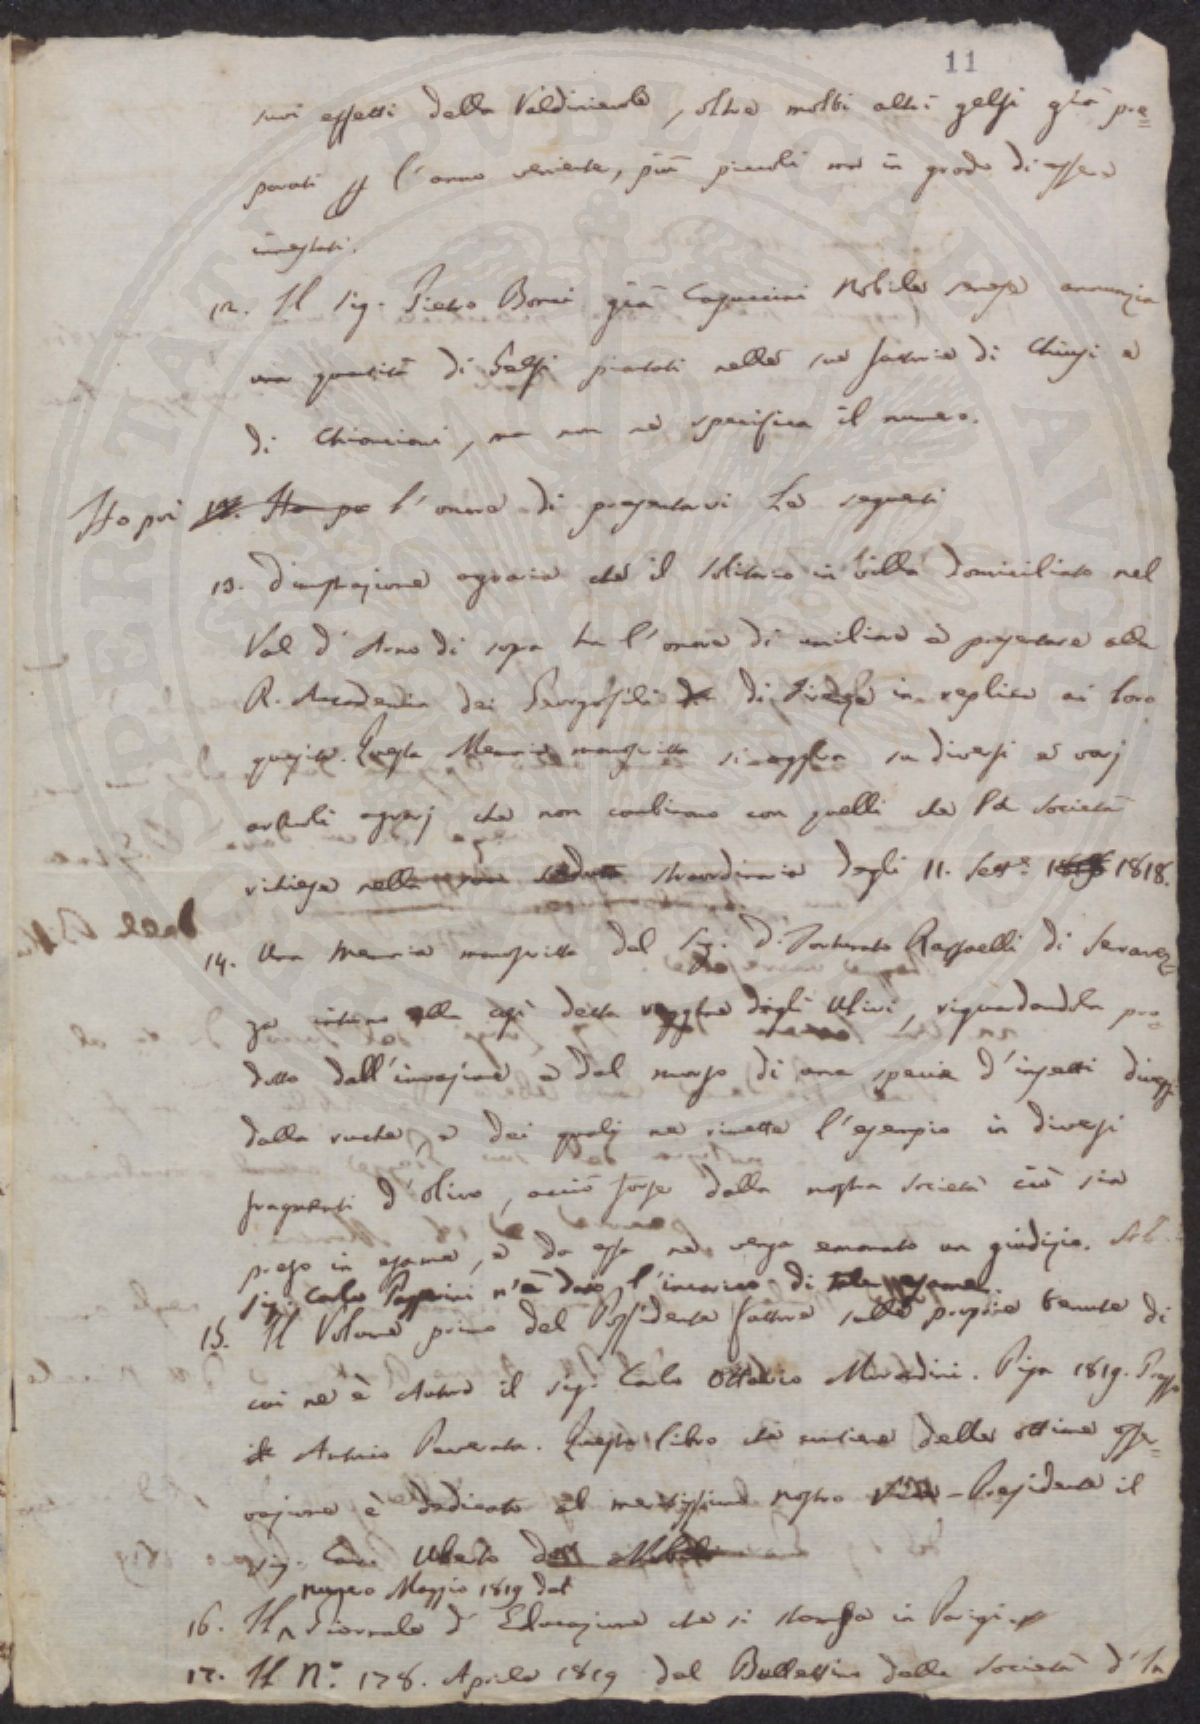 11
suoi effetti della Valdinievole, oltre molti altri gelsi già pre=
parati per l'anno veniente, più piccoli ma in grado di essere
innestati.
12. Il Sig. Pietro Bonci già Capuccini Nobile Senese annunzia
una quantità di Gelsi piantati nelle sue fattorie di Chiusi e
di Chianciani, ma non ne specifica il numero.
Ho poi l'onore di presentarvi Le seguenti
13. Dimostrazione agraria che il Solitario in Villa domiciliato nel
Val d'Arno di sopra ha l'onore di umiliare e presentare alla
R. Accademia dei Georgofili di Firenze in replica ai loro
quesiti. Questa Memoria manoscritta si aggira su diversi e varj
articoli agrarj che non combinano con quelli che la Società
richiese nella sua seduta straordinaria degli 11. Sett.e 1818.
14. Una Memoria manoscritta del Sig. D. Fortunato Raffaelli di Seravez=
za intorno alla così detta rogna degli Ulivi, riguardandola pro=
dotta dall'invasione e dal morso di una specie d'insetti diversi
dalla ruche, e dei quali ne rimette l'esempio in diversi
fragmenti d'olivo, acciò forse dalla nostra Società ciò sia
preso in esame, e da essa ne venga emanato un giudizio. Al
Sig. Carlo Passerini n'è dato l'incarico di tale esame.
15. Il Volume primo del Possidente fattore sulle proprie tenute di
cui ne è Autore il Sig. Carlo Ottavio Morandini. Pisa 1819. Presso
Antonio Peverata. Questo libro che contiene delle ottime osser=
vazione è dedicato al meritissimo nostro Vice-Presidente il
Sig. Cav. Uberto de Nobili
numero Maggio 1819 del
16. Il Giornale d'Educazione che si stampa in Parigi
17. Il N.° 178. Aprile 1819 del Bullettino della Società d'In